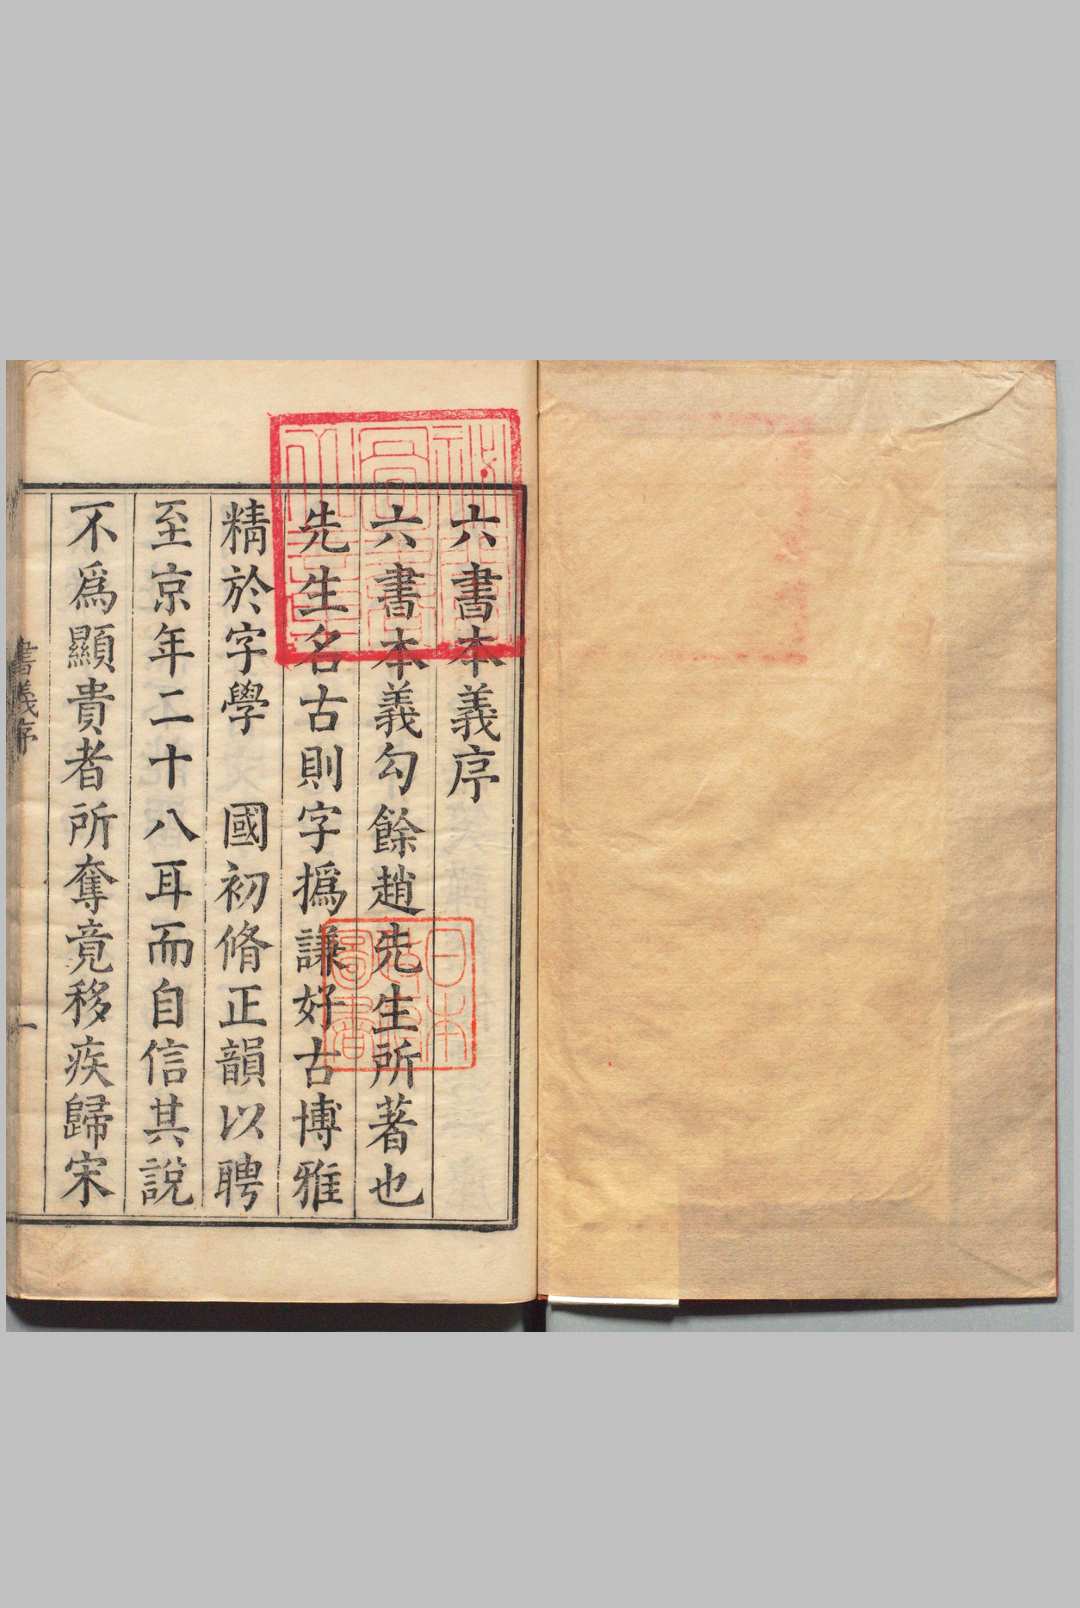 六書本義序
六書本義勾餘趙先生所著也
先生名古則字撝謙好古博雅
精於字學　國初脩正韻以聘
至京年二十八耳而自信其說
不爲顯貴者所奪竟移疾歸宋
書義序
一
日本
圖書